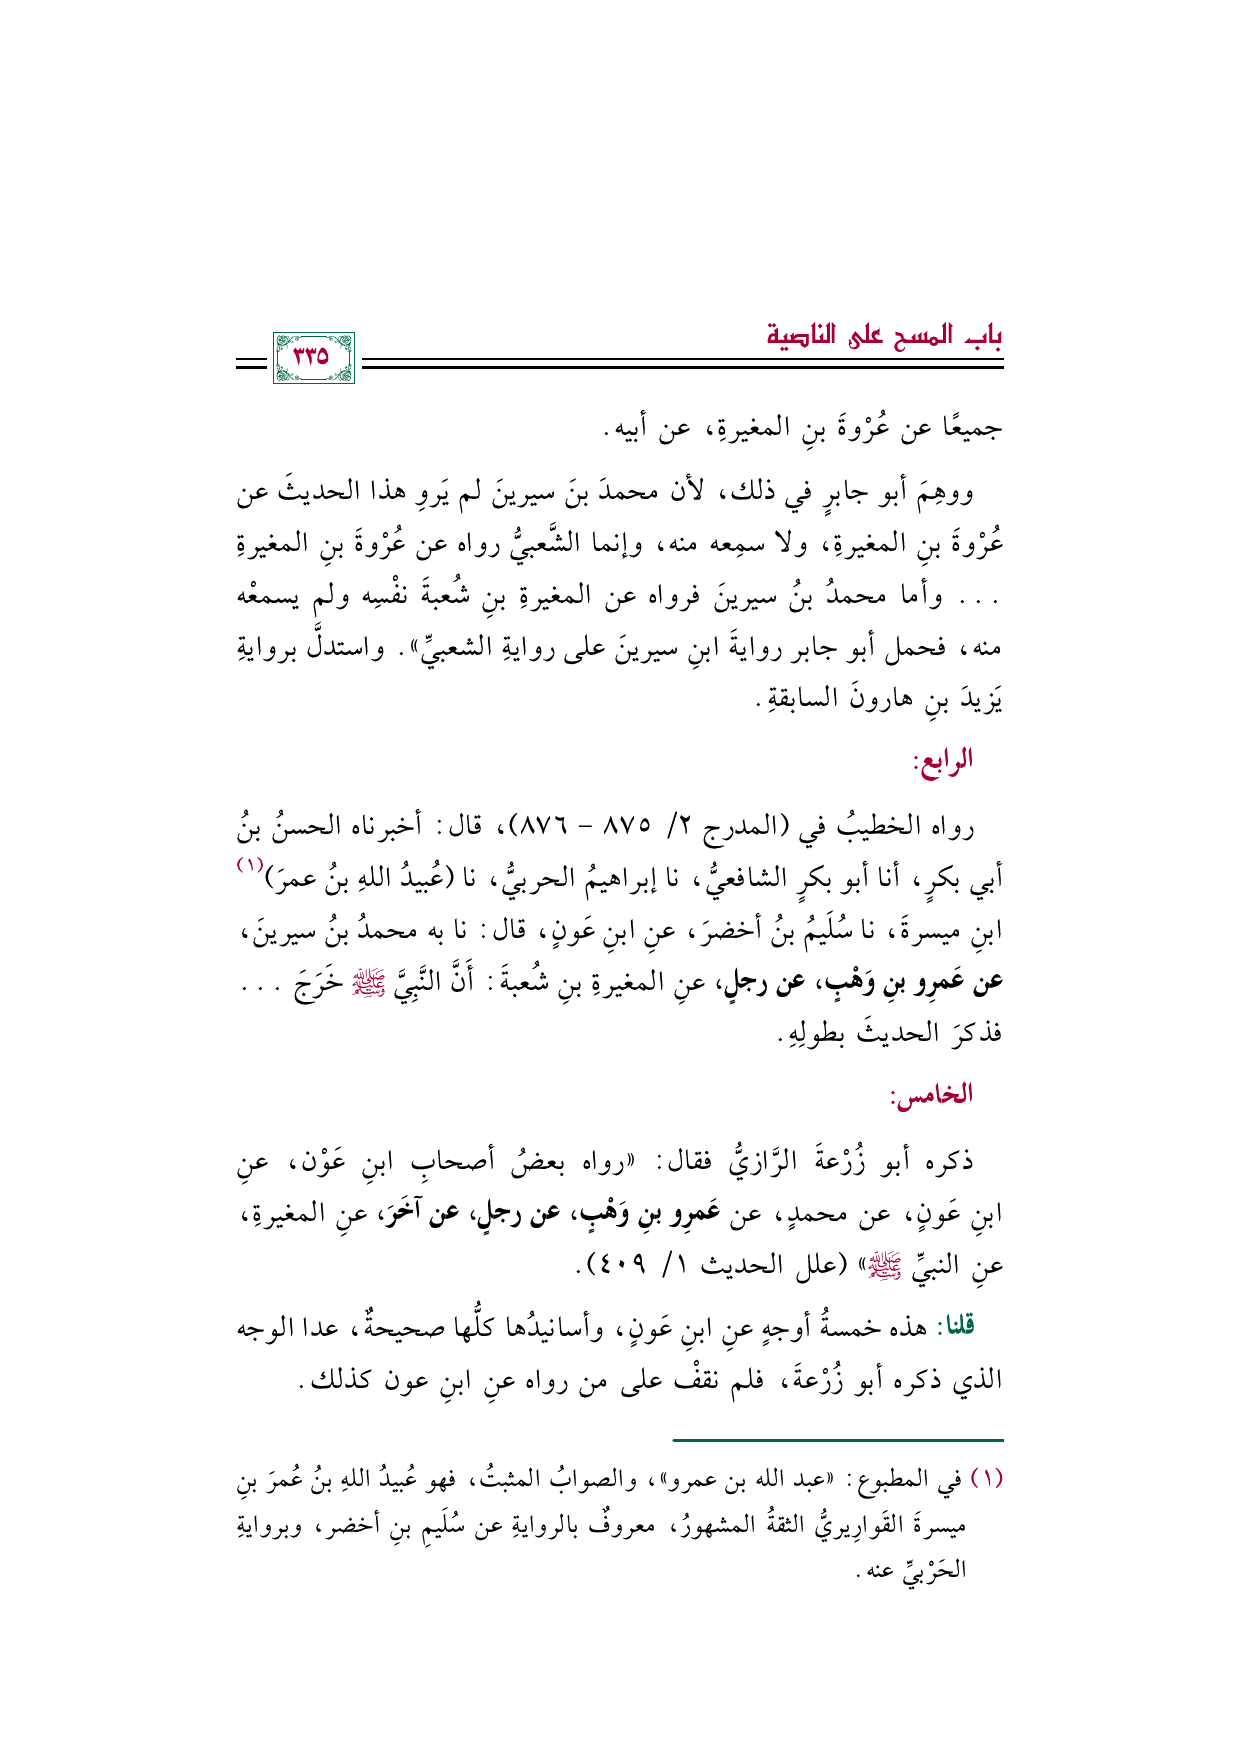 باب المسح على الناصية
٣٣٥
جميعًا عن عُرْوةَ بنِ المغيرةِ، عن أبيه.
ووهِمَ أبو جابرٍ في ذلك، لأن محمدَ بنَ سيرينَ لم يَروِ هذا الحديثَ عن
عُرْوةَ بنِ المغيرةِ، ولا سمِعه منه، وإنما الشَّعبيُّ رواه عن عُرْوةَ بنِ المغيرةِ
... وأما محمدُ بنُ سيرينَ فرواه عن المغيرةِ بنِ شُعبةَ نفْسِه ولم يسمعْه
منه، فحمل أبو جابر روايةَ ابنِ سيرينَ على روايةِ الشعبيِّ». واستدلَّ بروايةِ
يَزيدَ بنِ هارونَ السابقةِ.
الرابع:
رواه الخطيبُ في (المدرج ٢/ ٨٧٥ - ٨٧٦)، قال: أخبرناه الحسنُ بنُ
أبي بكرٍ، أنا أبو بكرٍ الشافعيُّ، نا إبراهيمُ الحربيُّ، نا (عُبيدُ اللهِ بنُ عمرَ)(١)
ابنِ ميسرةَ، نا سُلَيمُ بنُ أخضرَ، عنِ ابنِ عَونٍ، قال: نا به محمدُ بنُ سيرينَ،
عن عَمرِو بنِ وَهْبٍ، عن رجلٍ، عنِ المغيرةِ بنِ شُعبةَ: أَنَّ النَّبِيَّ ﷺ خَرَجَ ...
فذكرَ الحديثَ بطولِهِ.
الخامس:
ذكره أبو زُرْعةَ الرَّازيُّ فقال: «رواه بعضُ أصحابِ ابنِ عَوْن، عنِ
ابنِ عَونٍ، عن محمدٍ، عن عَمرِو بنِ وَهْبٍ، عن رجلٍ، عن آخَرَ، عنِ المغيرةِ،
عنِ النبيِّ ﷺ» (علل الحديث ١/ ٤٠٩).
قلنا: هذه خمسةُ أوجهٍ عنِ ابنِ عَونٍ، وأسانيدُها كلُّها صحيحةٌ، عدا الوجه
الذي ذكره أبو زُرْعةَ، فلم نقفْ على من رواه عنِ ابنِ عون كذلك.
(١) في المطبوع: «عبد الله بن عمرو»، والصوابُ المثبتُ، فهو عُبيدُ اللهِ بنُ عُمرَ بنِ
ميسرةَ القَوارِيريُّ الثقةُ المشهورُ، معروفٌ بالروايةِ عن سُلَيمِ بنِ أخضر، وبروايةِ
الحَرْبيِّ عنه.